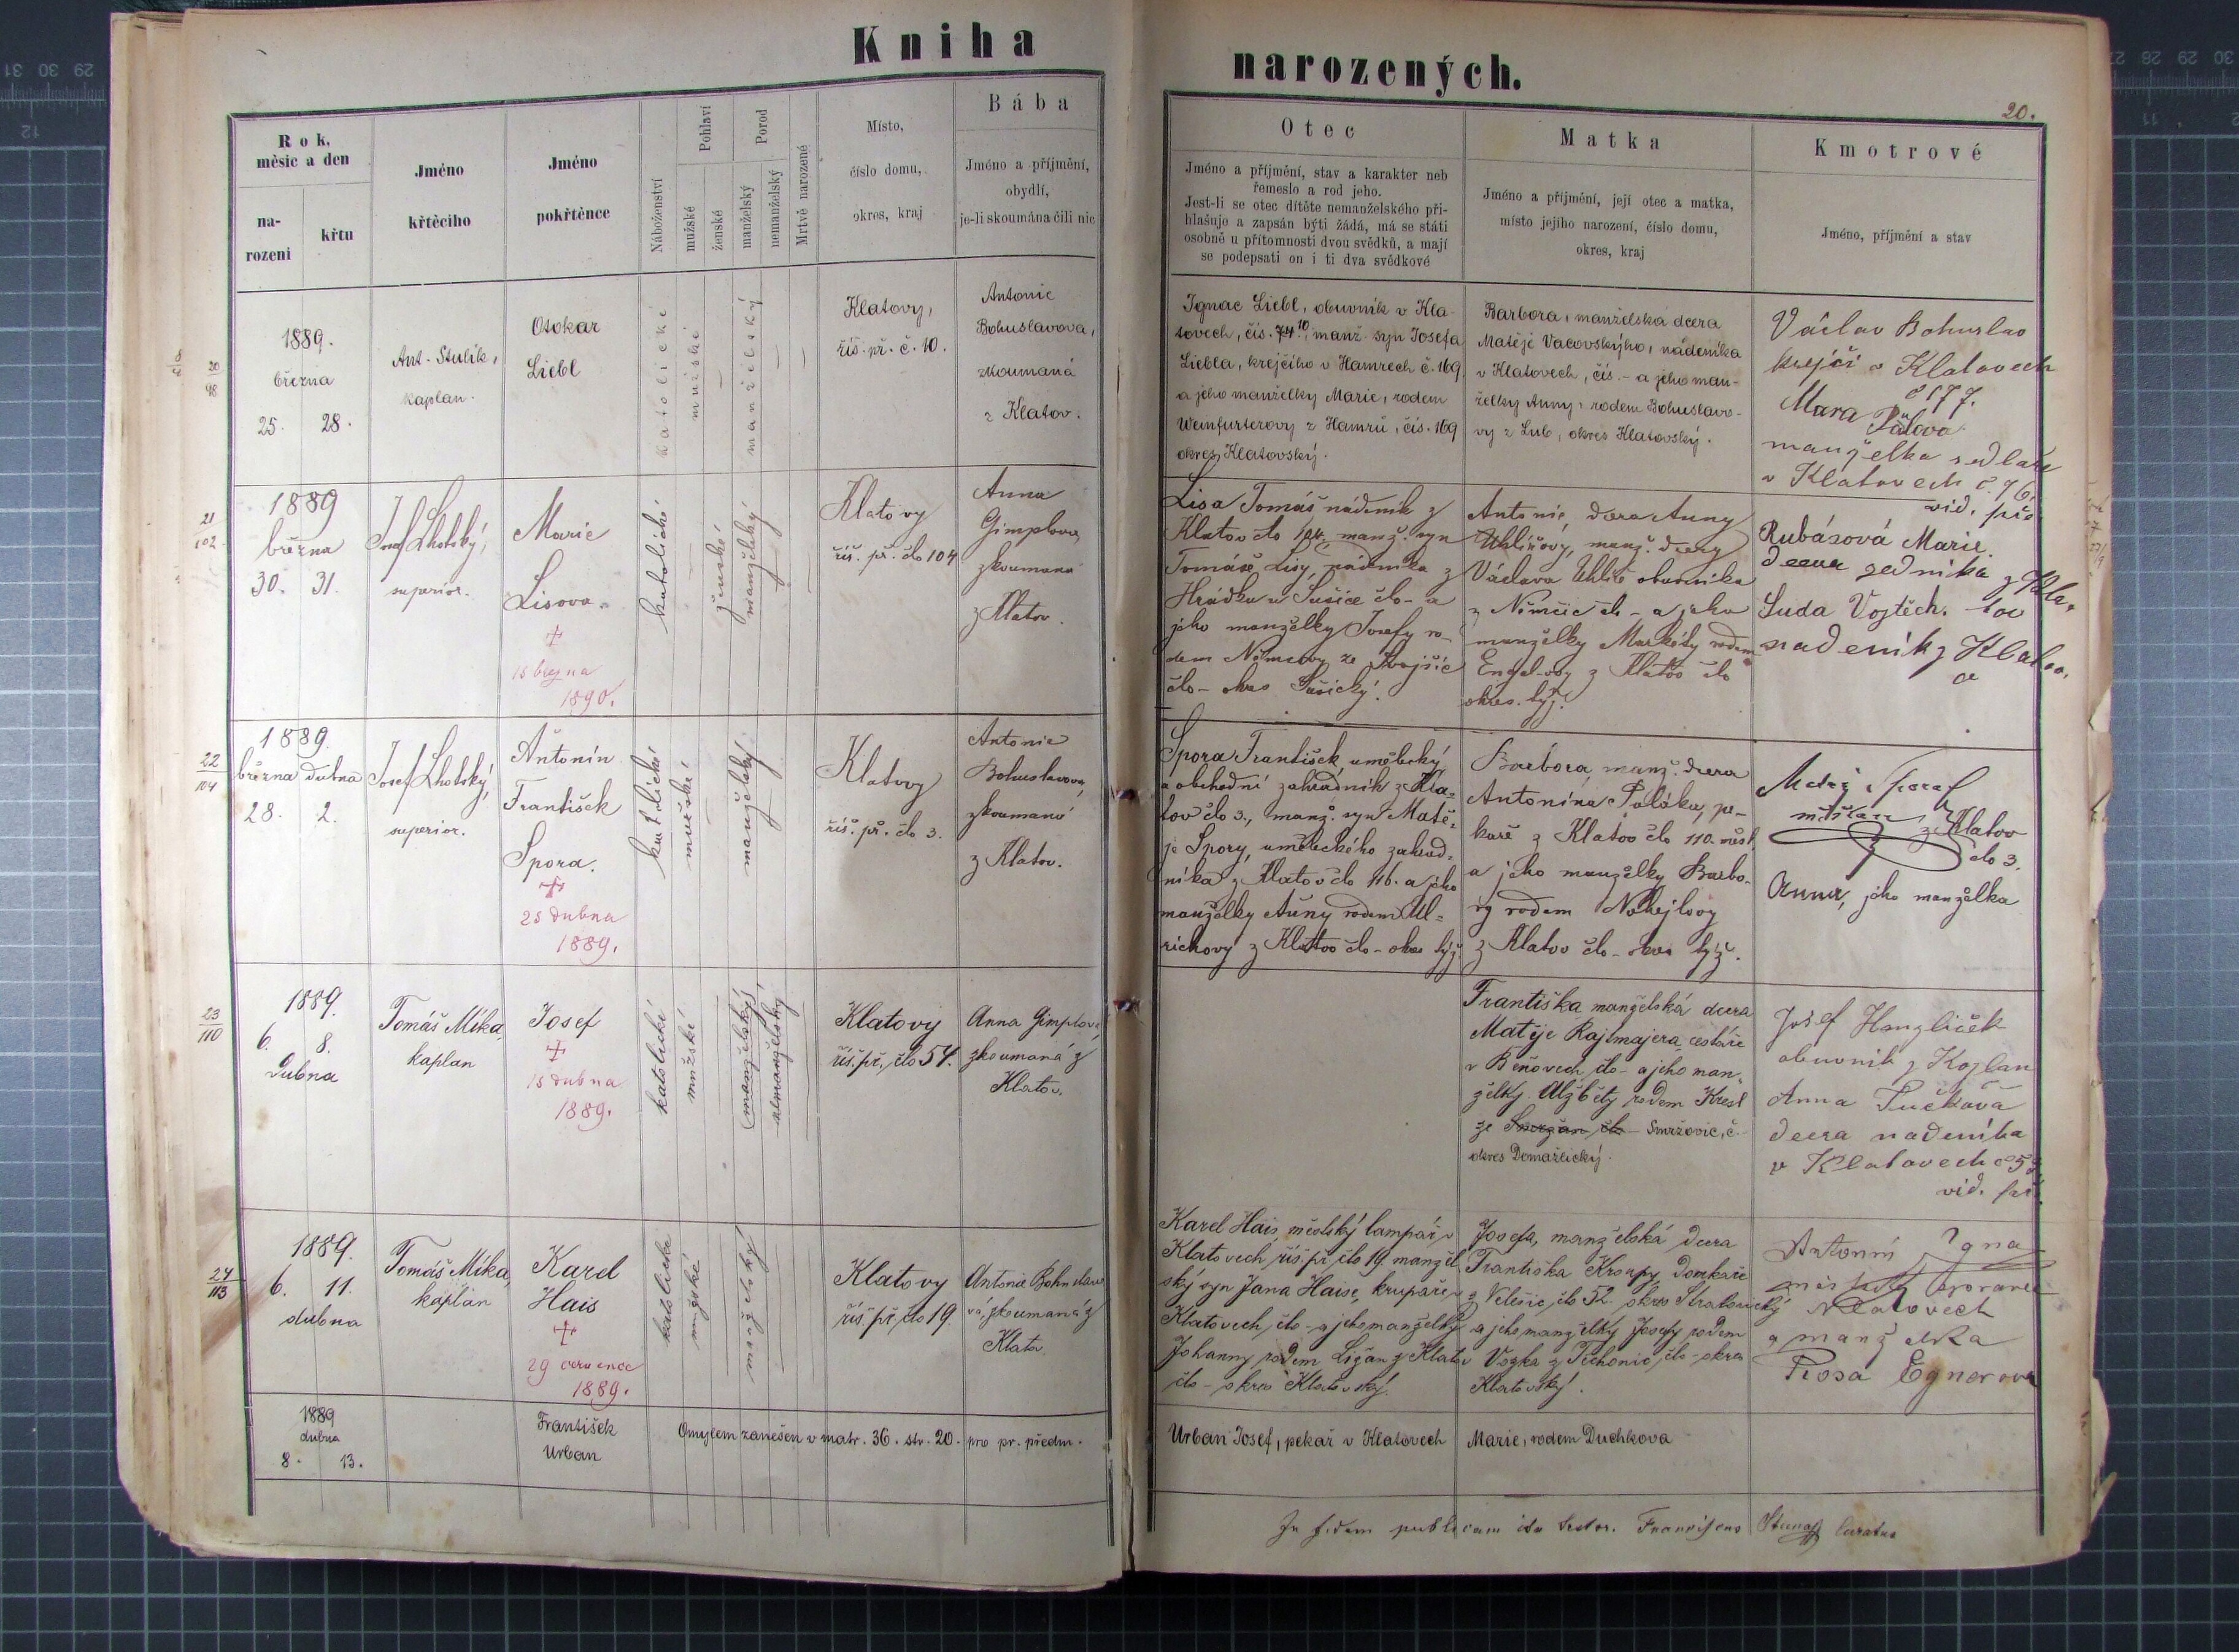 Kniha
narozených.
20.
Rok,
měsíc a den
na-
rození
křtu
Jméno
křtěcího
Jméno
pokřtěnce
Náboženství
Pohlaví
mužské
ženské
Porod
manželský
nemanželský
Mrtvě narozené
Místo,
číslo domu,
okres, kraj
Bába
Jméno a příjmění,
obydlí,
je-li skoumána čili nic
Otec
Jméno a příjmění, stav a karakter neb
řemeslo a rod jeho.
Jest-li se otec dítěte nemanželského při-
hlašuje a zapsán býti žádá, má se státi
osobně u přítomnosti dvou svědků, a mají
se podepsati on i ti dva svědkové
Matka
Jméno a příjmění, její otec a matka,
místo jejího narození, číslo domu,
okres, kraj
Kmotrové
Jméno, příjmění a stav
20
98
1889.
března
25. 28.
Ant. Stulík,
kaplan.
Otokar
Liebl
katolické
mužské
manželský
Klatovy,
říš. př. č. 10.
Antonie
Bohuslavova,
zkoumaná
z Klatov.
Ignac Liebl, obuvník v Kla-
tovech, čís. 74 10, manž. syn Josefa
Liebla, krejčího v Hamrech č. 169
a jeho manželky Marie, rodem
Weinfurterovy z Hamrů, čís. 169
okres Klatovský.
Barbora, manželská dcera
Matěje Vacovskýho, nádeníka
v Klatovech, čís. - a jeho man-
želky Anny, rodem Bohuslavo-
vy z Lub, okres Klatovský.
Václav Bohuslav
krejčí v Klatovech
č 177.
manželka sedláře
v Klatovech č. 76.
vid. pře
21
102
1889
března
30. 31.
Josef Lhotský,
superior.
Marie
Lisova.
15 března
1890.
katolické
ženské
manželský
Klatovy
říš. př. člo 104
Anna
Gimplova,
zkoumaná
z Klatov.
Lisa Tomáš nádeník z
Klatov člo 104. manž. syn
Tomáše Lisy, nádeníka z
Hrádku u Sušice člo - a
jeho manželky Josefy ro-
dem Němcovy ze Svojšic
člo - okres Sušický.
Antonie, dcera Anny
Uhlířovy, manž. dcery
Václava Uhlíře obuvníka
z Němčic člo - a jeho
manželky Markéty rodem
Engel-ovy z Klatov člo
okres. týž.
Rubásová Marie.
dcera zedníka z Kla-
tov
Suda Vojtěch.
nadeník z Klatov.
22
104
1889.
března dubna
28. 2.
Josef Lhotský,
superior.
Antonín
František
Spora.
25 dubna
1889.
katolické
mužské
manželský
Klatovy
říš. př. člo 3.
Antonie
Bohuslavova,
zkoumaná
z Klatov.
Spora František, umělecký
a obchodní zahradník z Kla-
tov člo 3., manž. syn Matě-
je Spory, uměleckého zahrad-
níka z Klatov člo 116. a jeho
manželky Anny rodem Ul-
richovy z Klatov člo - okres týž.
Barbora manž. dcera
Antonína Poláka, pe-
kaře z Klatov člo 110. měst.
a jeho manželky Barbo-
ry rodem Nohejlovy
z Klatov člo - okres týž.
Matěj Spora
měšťan z Klatov
člo 3.
Anna, jeho manželka
23
110
1889.
6. 8.
Dubna
Tomáš Míka,
kaplan
Josef
15 dubna
1889.
katolické
mužské
manželský,
nemanželský
Klatovy
říš. př., člo 57.
Anna Gimplova,
zkoumaná z
Klatov.
Františka manželská dcera
Matěje Rajtmajera, cestáře
v Běňovech člo - a jeho man-
želky Alžběty rodem Kresl
ze Smržovic, č -
okres Domažlický.
Josef Hanzlíček
obuvník z Koplan
Anna Tučková
dcera nadeníka
v Klatovech č 57
vid. př.
24
113
1889.
6. 11.
dubna
Tomáš Míka,
kaplan
Karel
Hais
29 července
1889.
katolické
mužské
manželský
Klatovy
říš. př., člo 19.
Antonie Bohuslavo
vá, zkoumaná z
Klatov.
Karel Hais, městský lampář v
Klatovech, říš. př. člo 19. manžel-
ský syn Jana Haise, krupaře v
Klatovech, člo - a jeho manželky
Johanny rodem Ližan z Klatov
člo - okres Klatovský.
Josefa, manželská dcera
Františka Kroupy, Domkáře
z Velešic, člo 52. okres Strakonický
a jeho manželky Josefy rodem
Vozka z Těchonic, člo - okres
Klatovský.
Antonín
v Klatovech
a manželka
Rosa Egnerova
1889
dubna
8. 13.
František
Urban
Omylem zanešen v matr. 36. str. 20. pro pr. předm.
Urban Josef, pekař v Klatovech
Marie, rodem Duchkova
In fidem publicam